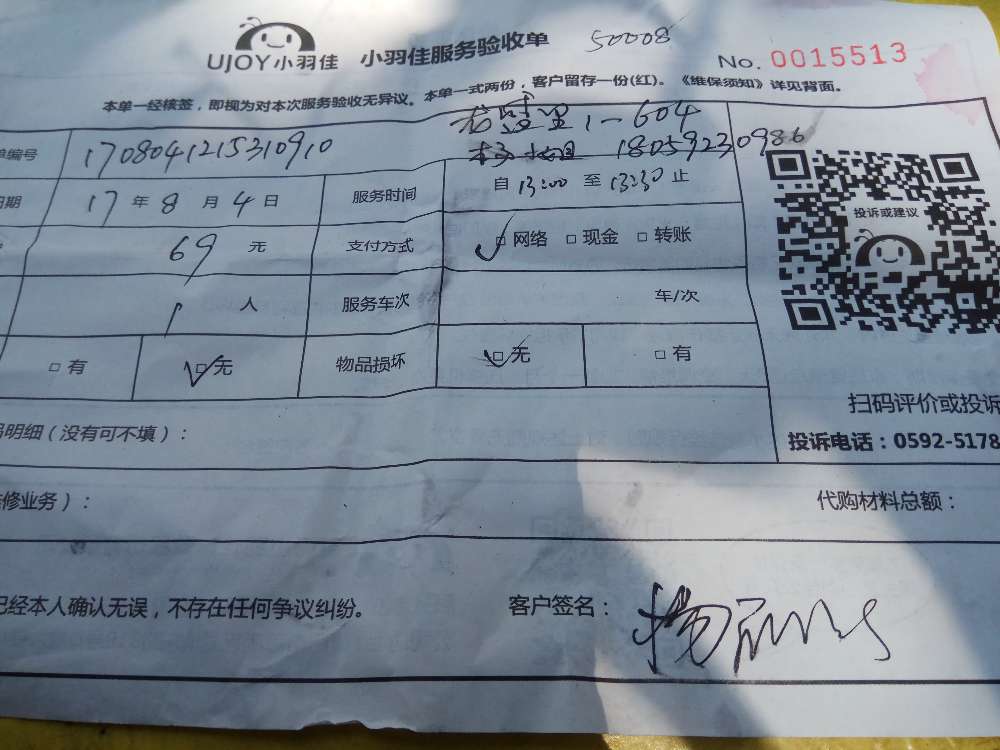 UJOY小羽佳 小羽佳服务验收单 50008
No. 0015513
本单一经核签，即视为对本次服务验收无异议。本单一式两份，客户留存一份(红)。《维保须知》详见背面。
里 1-604
单编号 1708041215310910 小姐 18059230986
日期 17 年 8 月 4 日 服务时间 自 13:00 至 13:30 止
69 元 支付方式 ✓□ 网络 □ 现金 □ 转账
投诉或建议
1 人 服务车次 车/次
□ 有 ✓□ 无 物品损坏 ✓□ 无 □ 有
扫码评价或投诉
明细（没有可不填）：
投诉电话：0592-5178
修业务）： 代购材料总额：
已经本人确认无误，不存在任何争议纠纷。 客户签名：